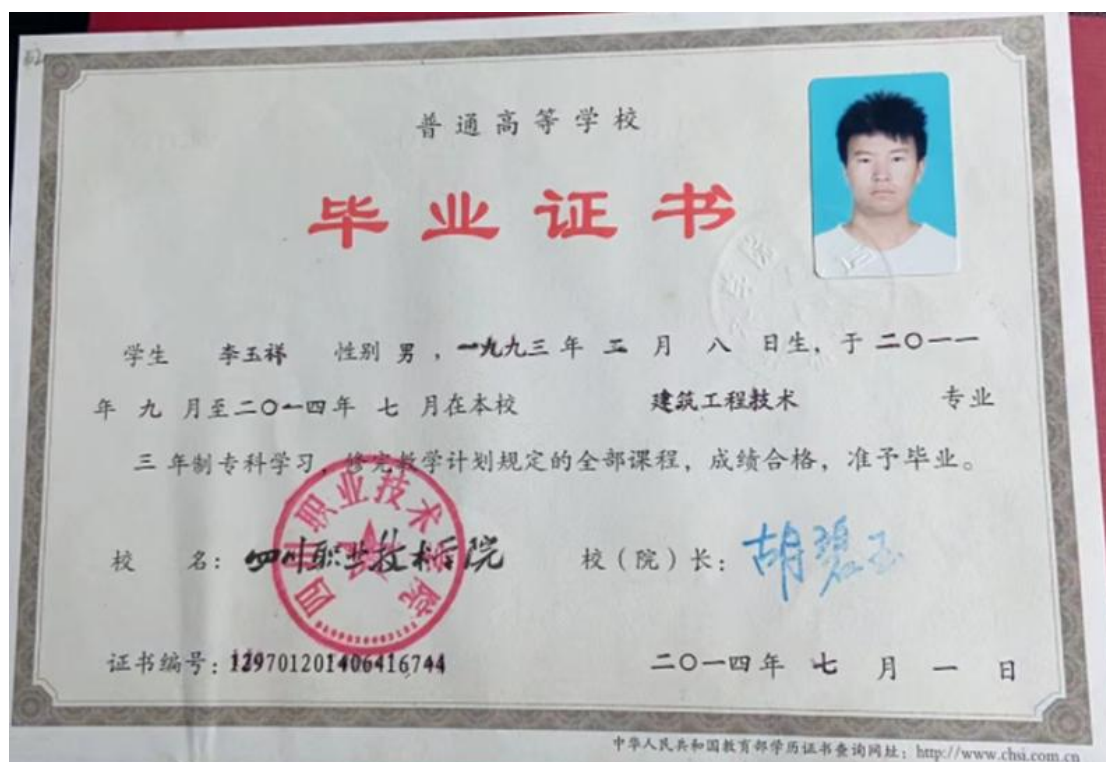 普通高等学校
毕业证书
学生 李玉祥 性别 男 ，一九九三 年 二 月 八 日生，于 二〇一一
年 九 月至二〇一四年 七 月在本校 建筑工程技术 专业
三 年制专科学习，修完教学计划规定的全部课程，成绩合格，准予毕业。
校 名：四川职业技术学院 校（院）长：胡碧玉
四川职业技术学院
证书编号：129701201406416744 二〇一四年 七 月 一 日
中华人民共和国教育部学历证书查询网址：http://www.chsi.com.cn